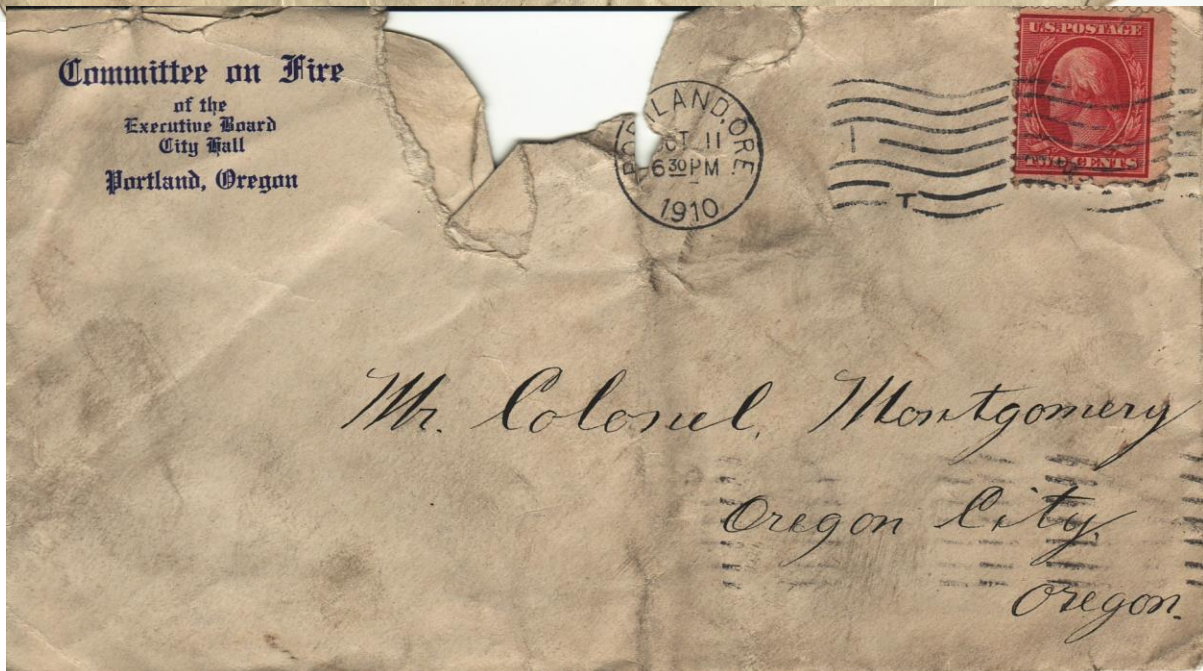 Committee on Fire
of the
Executive Board
City Hall
Portland, Oregon
PORTLAND, ORE.
OCT 11
6 30 PM
1910
U.S. POSTAGE
TWO CENTS
Mr. Colonel, Montgomery
Oregon City,
Oregon.